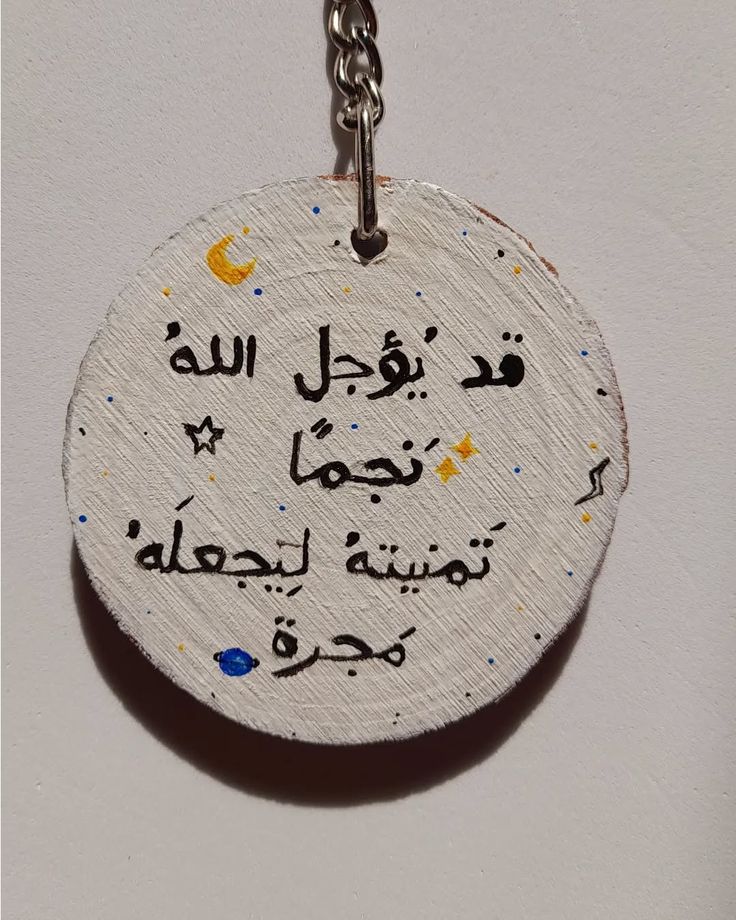 قد يُؤجل اللهُ
نَجمًا
تَمنيتهُ لِيَجعلَهُ
مَجرة